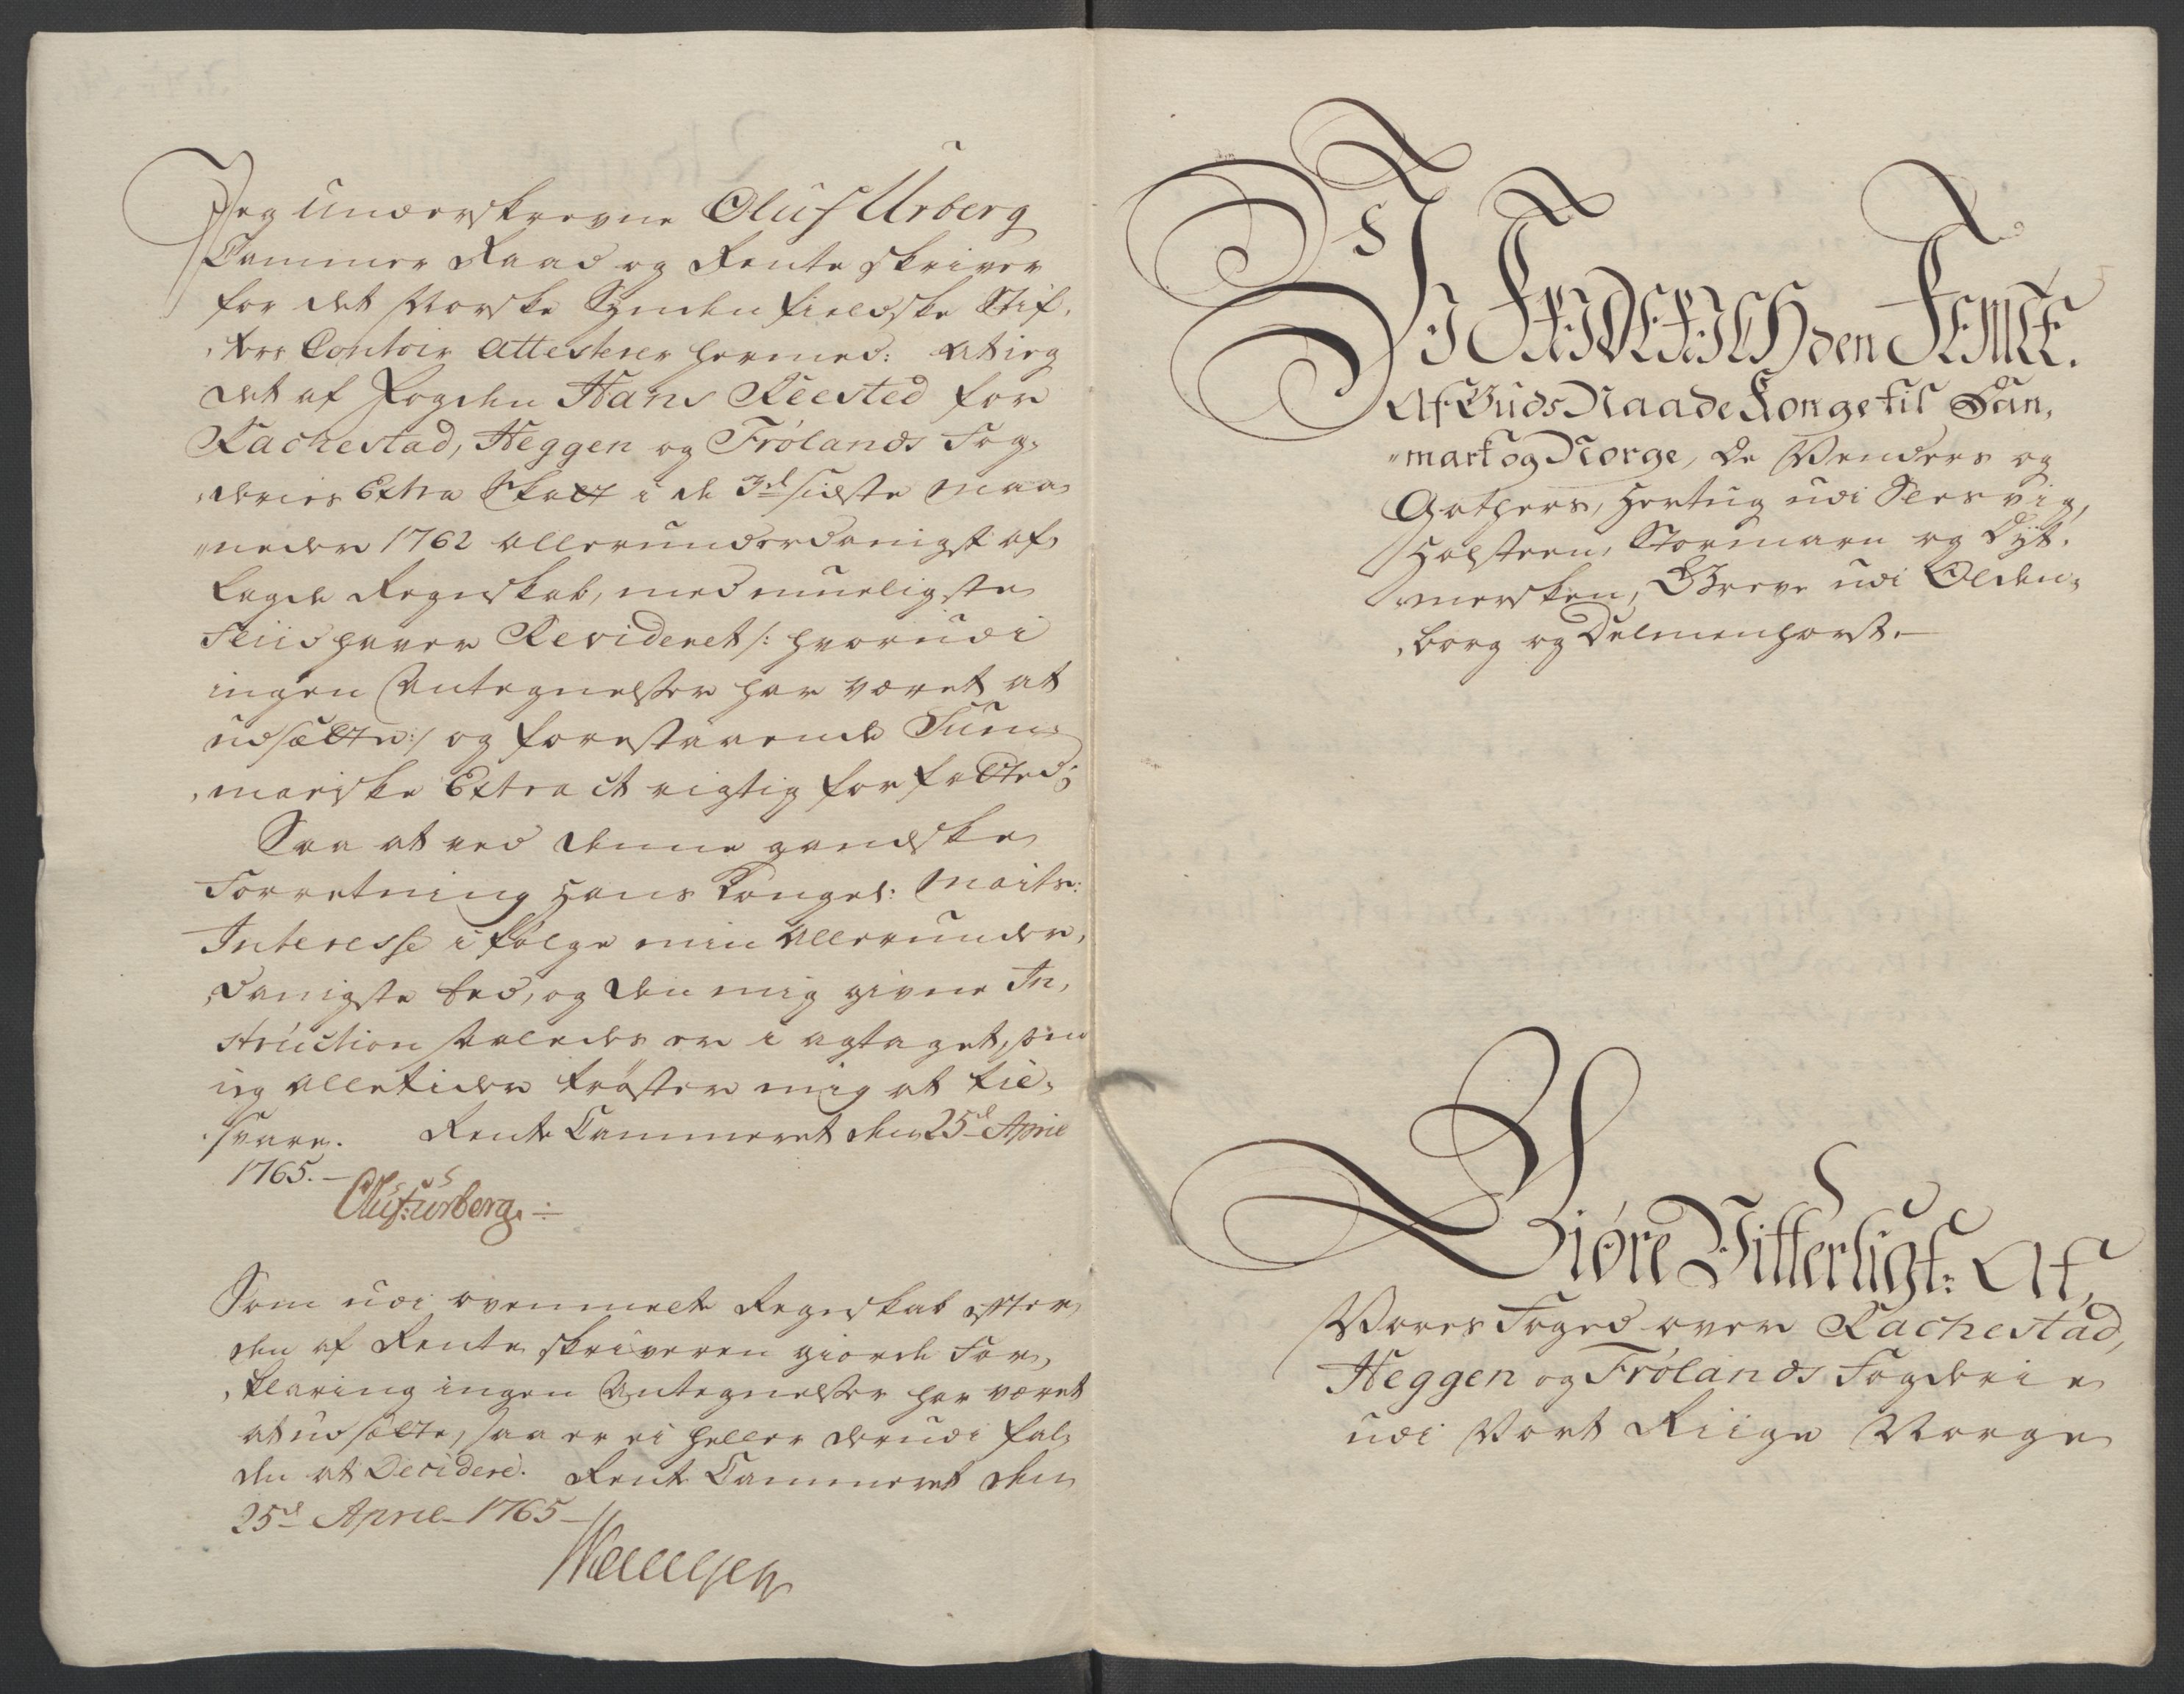 Jeg underskrevne Oluf Urberg
Cammer Raad og Rente skriver
for det Norske Synden fieldske Stif,
,ters Contoir Attesterer hermed: at ieg
det af Fogden Hans Reested for
Rachestad, Heggen og Frølands Fog,
,deries Extra Skatt i de 3de sidste Maa
„neder 1762 allerunderdanigst af,
lagde Regnskab, med mueligste
Fliid haver Revideret /: hvorudi
ingen Antegnelser har været at
udsætte :/ og forestaaende Sum,
,mariske Extract rigtig forfattet;
Saa at ved denne gandske
Forretning Hans Kongel: Maits:
Interesse i følge min Allerunder,
,danigste Eed, og den mig givne In,
struction saaledes er i agtaget, som
ieg alletider trøster mig at til,
,svare. Rente Cammeret den 25de April
1765.–
Oluf: Urberg.
Som udi ovenmelte Regnskab efter
den af Rente skriveren giorde For,
,klaring ingen Antegnelser har været
at udsætte, saa er ei heller derudi fal,
den at Decidere. Rente Cammeret den
25de April 1765–
Wi FRIDERICH den FEMTE.
Af Guds Naade Konge til Dan,
„mark og Norge, de Venders og
Gothers, Hertug udi Slesvig,
Holsteen, Stormarn og Dyt,
mersken, Greve udi Olden,
,borg og Delmenhorst.–
Giøre Vitterligt: At
Vores Foged over Rachestad,
Heggen og Frølands Fogderie
udi Vort Riige Norge